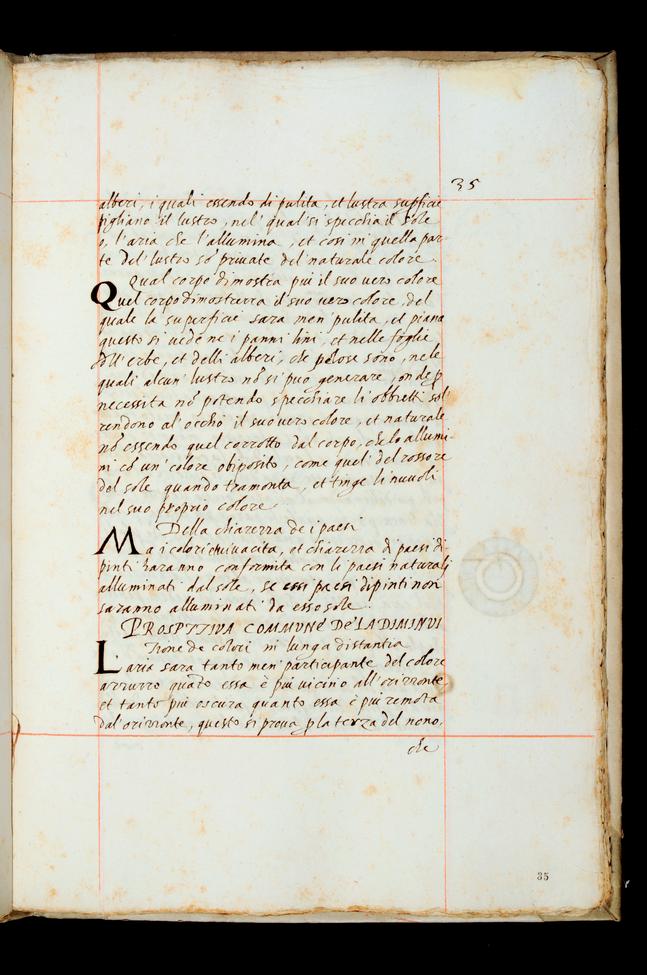 35
alberi, i quali essendo di pulita, et lustra supficie
pigliano il lustro, nel' qual' si specchia il sole
o, l'aria che l'allumina, et cosi in quella par-
te del lustro so' private del' naturale colore.
Qual corpo dimostra piu il suo vero colore
Quel corpo dimostrerra il suo vero colore, del
quale la superficie sara men' pulita, et piana
questo si vede ne i panni lini, et nelle foglie
dell'erbe, et delli alberi, che pelose sono, nele
quali alcun' lustro no' si puo generare, onde p
necessita no' potendo specchiare li obbietti sol
rendono al' occhio il suo vero colore, et naturale
no' essendo quel corrotto dal corpo, che lo allumi-
ni co' un' colore obiposito, come quel' del rossore
del sole quando tramonta, et tinge li nuvoli
nel suo proprio colore
Della chiarezza de i paesi
Ma i colori vivacita, et chiarezza di paesi di
pinti haranno conformita con li paesi naturali
alluminati dal sole, se essi paesi dipinti non
saranno alluminati da esso sole.
PROSPTTIVA COMMUNE DE LA DIMINUI
tione de colori in lunga distantia
L'aria sara tanto men' participante del colore
azzurro quato essa è piu vicino all'orizzonte
et tanto piu oscura quanto essa è piu remota
dal'orizzonte, questo si prova p la terza del nono.
che
35